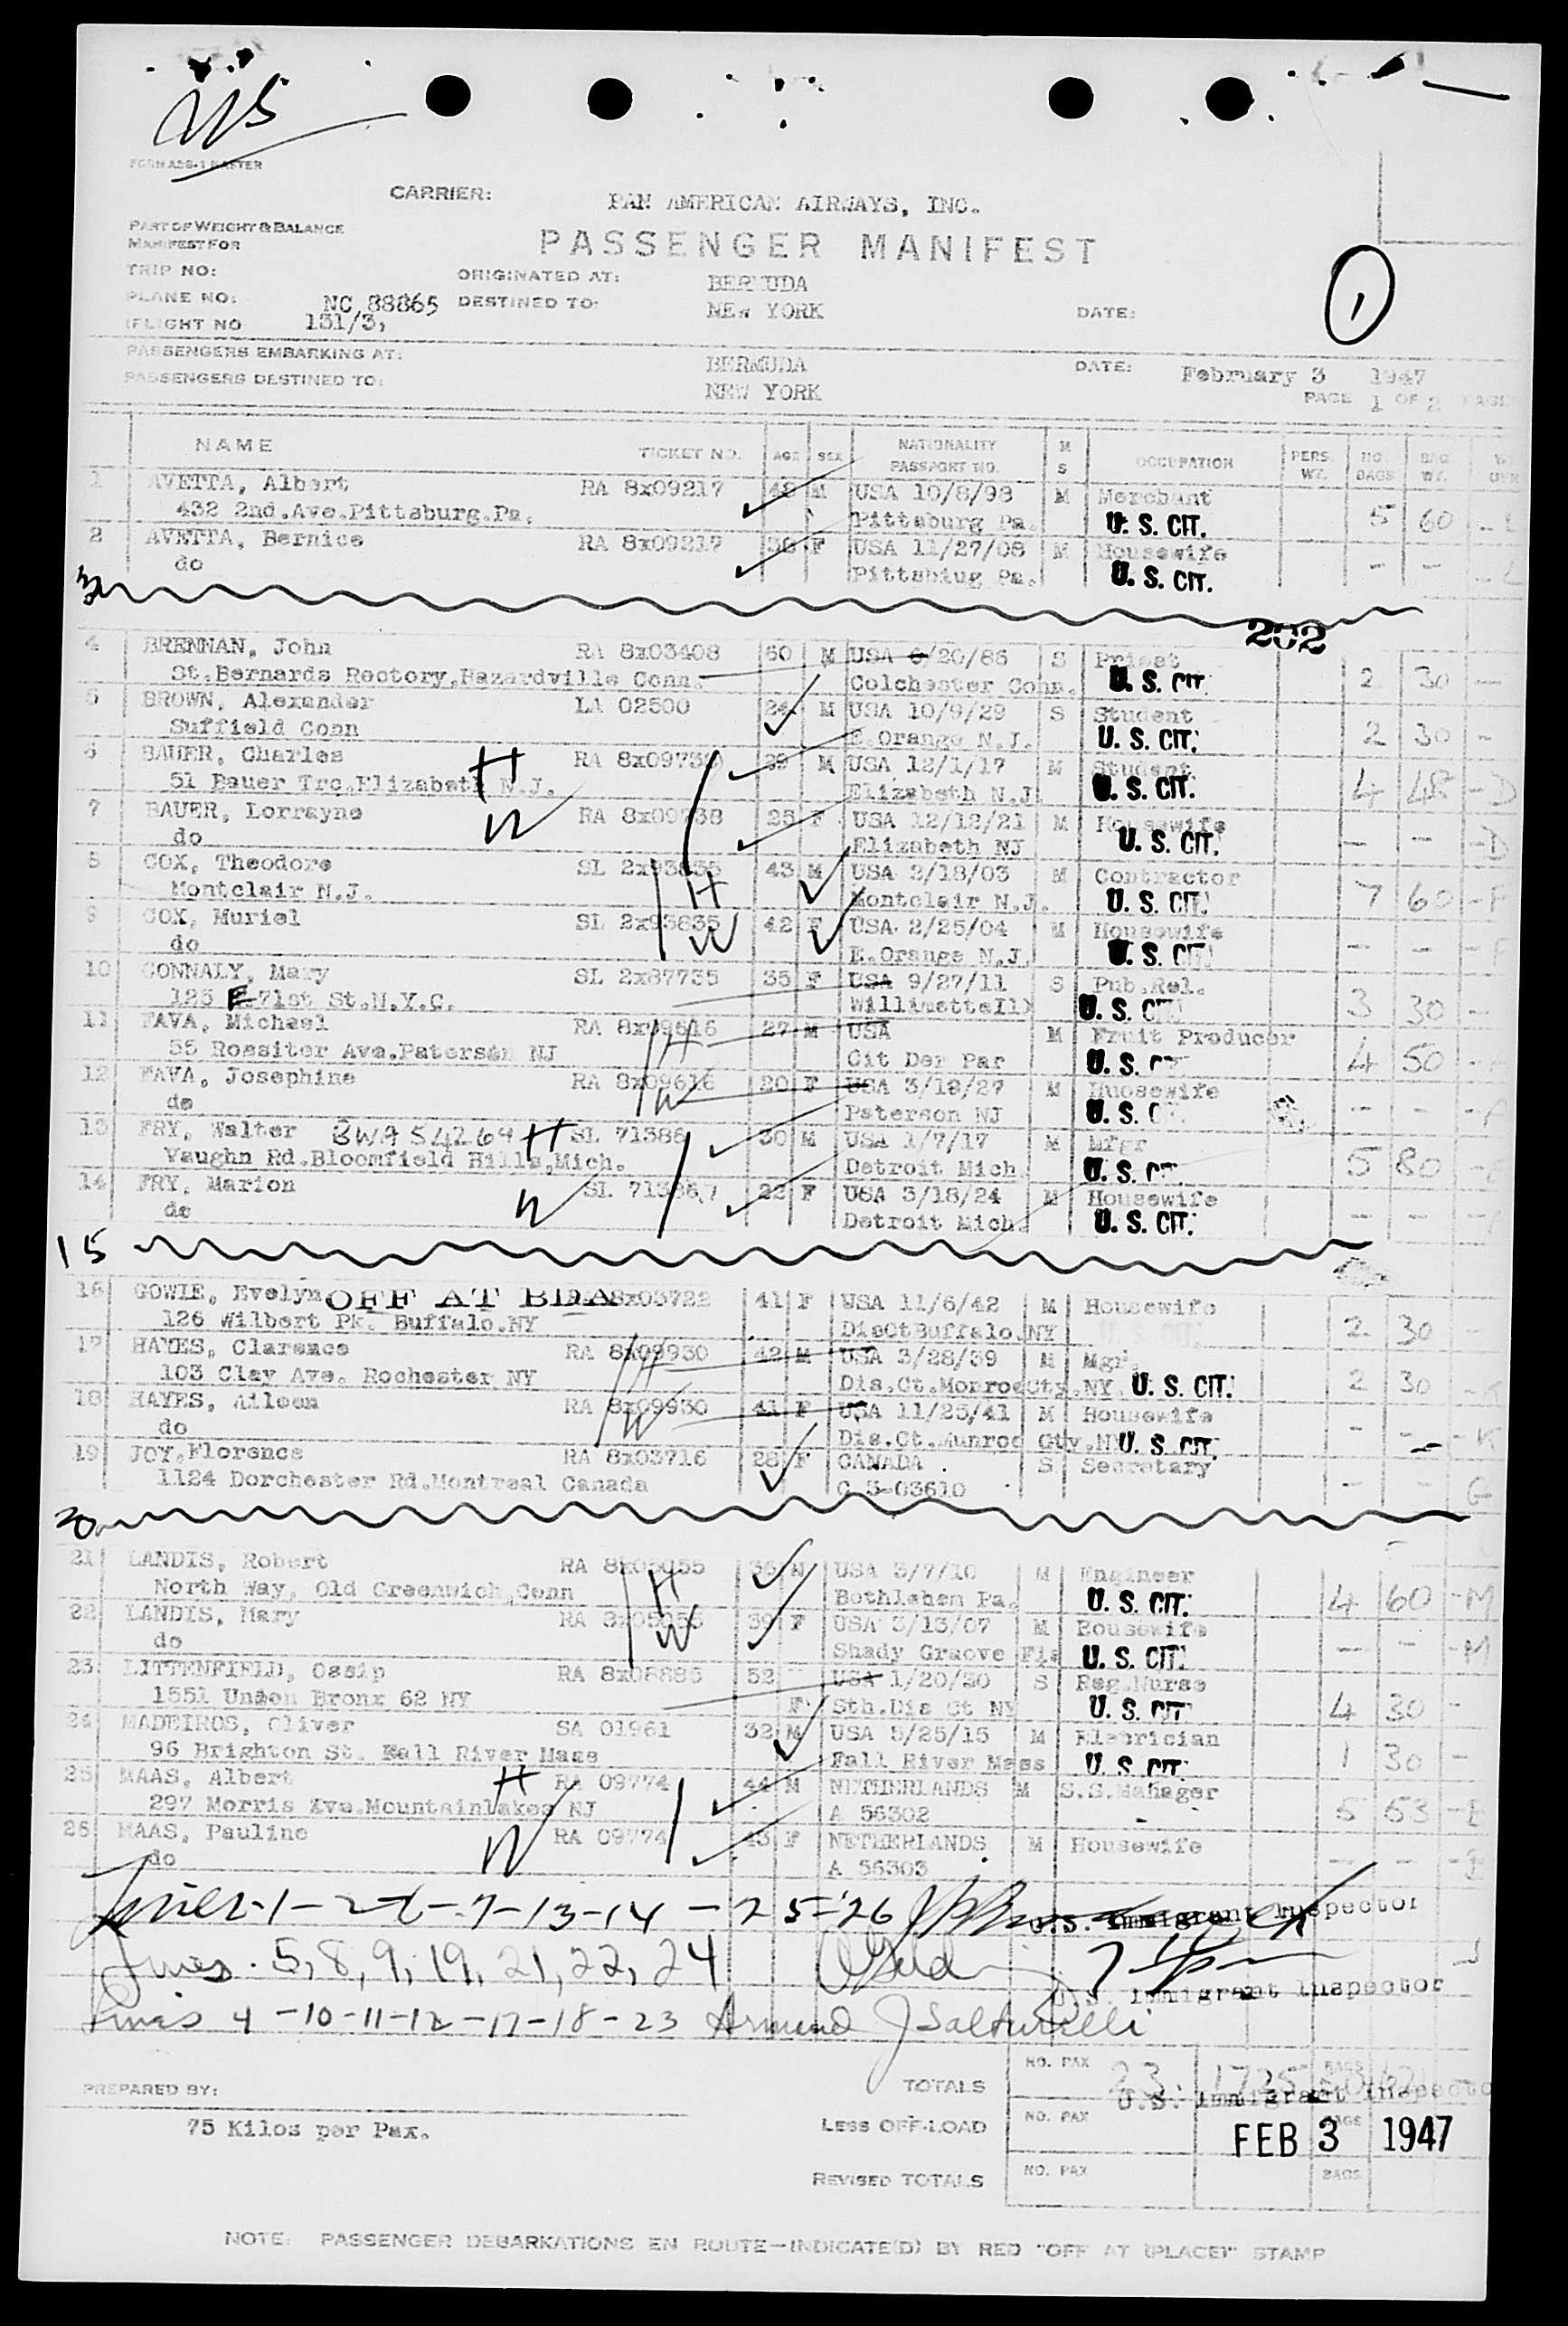 215
FORM ADS-1 RAFTER
CARRIER: PAN AMERICAN AIRWAYS, INC.
PART OF WEIGHT & BALANCE
MANIFEST FOR
PASSENGER MANIFEST
TRIP NO: ORIGINATED AT: BERMUDA
PLANE NO: NC 88865 DESTINED TO: NEW YORK DATE:
(FLIGHT NO 131/3,
1
PASSENGERS EMBARKING AT: BERMUDA DATE: February 3 1947
PASSENGERS DESTINED TO: NEW YORK PAGE 1 OF 2 PAGE
NAME TICKET NO. AGE SEX NATIONALITY PASSPORT NO. M S OCCUPATION PERS. WT. NO. BAGS BAG WT.
1 AVETTA, Albert RA 8x09217 48 M USA 10/8/98 M Merchant
432 2nd.Ave.Pittsburg.Pa. Pittsburg Pa. U. S. CIT. 5 60
2 AVETTA, Bernice RA 8x09217 38 F USA 11/27/08 M Housewife
do Pittsbiug Pa. U. S. CIT. - -
3
202
4 BRENNAN, John RA 8x03408 60 M USA 6/20/86 S Priest
St.Bernards Rectory,Hazardville Conn. Colchester Conn. U. S. CIT. 2 30 -
5 BROWN, Alexander LA 02500 24 M USA 10/9/29 S Student
Suffield Conn E.Orange N.J. U. S. CIT. 2 30 -
6 BAUER, Charles H RA 8x09738 29 M USA 12/1/17 M Student
51 Bauer Trc.Elizabeth N.J. Elizabeth N.J U. S. CIT. 4 48 - D
7 BAUER, Lorrayne W RA 8x09738 25 F USA 12/12/21 M Housewife
do Elizabeth NJ U. S. CIT. - - - D
8 COX, Theodore SL 2x93835 43 M USA 2/18/03 M Contractor
Montclair N.J. H Montclair N.J. U. S. CIT. 7 60 - F
9 COX, Muriel SL 2x93835 42 F USA 2/25/04 M Housewife
do W E.Orange N.J. U. S. CIT. - - - F
10 CONNALY, Mary SL 2x87735 35 F USA 9/27/11 S Pub.Rel.
125 E.71st St.N.Y.C. WillimetteIll U. S. CIT. 3 30 -
11 FAVA, Michael RA 8x09616 27 M USA M Fruit Producer
55 Rossiter Ave.Paterson NJ H Cit Der Par U. S. 4 50
12 FAVA, Josephine RA 8x09616 20 F USA 3/19/27 M Huosewife
do W Paterson NJ U. S. C - -
13 FRY, Walter BWA 54269 H SL 71386 30 M USA 1/7/17 M Mfgr
Vaughn Rd.Bloomfield Hills,Mich. Detroit Mich. U. S. 5 80
14 FRY, Marion W SL 71386 22 F USA 3/18/24 M Housewife
do Detroit Mich. U. S. CIT. - -
15
16 GOWIE, Evelyn OFF AT BDA 8x03722 41 F USA 11/6/42 M Housewife
126 Wilbert Pk. Buffalo.NY DisCtBuffalo.NY 2 30
17 HAYES, Clarence RA 8x09930 42 M USA 3/28/39 M Mgr.
103 Clay Ave. Rochester NY H Dis.Ct.MonroeCty.NY. U. S. CIT. 2 30 - K
18 HAYES, Aileen RA 8x09930 41 F USA 11/25/41 M Housewife
do W Dis.Ct.Munroe Cty.NY U. S. CIT. - - - K
19 JOY,Florence RA 8x03716 28 F CANADA S Secretary
1124 Dorchester Rd.Montreal Canada C 3-03610 - - G
20
21 LANDIS, Robert RA 8x05055 36 M USA 3/7/10 M Engineer
North Way, Old Greenwich,Conn H Bethlehem Pa. U. S. CIT. 4 60 - M
22 LANDIS, Mary RA 8x05055 39 F USA 3/13/07 M Housewife
do W Shady Graove Fla U. S. CIT. - - - M
23 LITTENFIELD, Ossip RA 8x08885 52 USA 1/20/30 S Reg.Nurse
1551 Union Bronx 62 NY F Sth.Dis Ct NY U. S. CIT 4 30 -
24 MADEIROS, Oliver SA 01961 32 M USA 5/25/15 M Elebrician
96 Brighton St. Fall River Mass Fall River Mass U. S. CIT. 1 30 -
25 MAAS, Albert H RA 09774 44 M NETHERLANDS M S.S.Manager
297 Morris Ave.Mountainlakes NJ A 56302 5 53
26 MAAS, Pauline W RA 09774 43 F NETHERLANDS M Housewife
do A 56303 - -
Lines-1-2-6-7-13-14-25-26 U.S. Immigrant Inspector
Lines. 5, 8, 9, 19, 21, 22, 24
U.S. Immigrant Inspector
Lines 4-10-11-12-17-18-23 Armand J Salturelli
TOTALS NO. PAX 23 1725 BAGS
U.S. Immigrant Inspector
PREPARED BY:
75 Kilos per Pax. LESS OFF-LOAD NO. PAX BAGS
FEB 3 1947
REVISED TOTALS NO. PAX BAGS
NOTE: PASSENGER DEBARKATIONS EN ROUTE-INDICATE(D) BY RED "OFF AT (PLACE)" STAMP